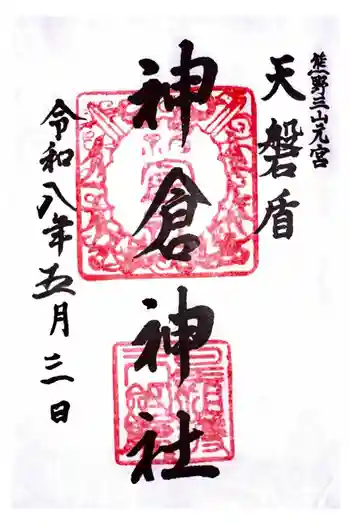 熊野三山元宮
天磐盾
神倉神社
令和八年五月三日